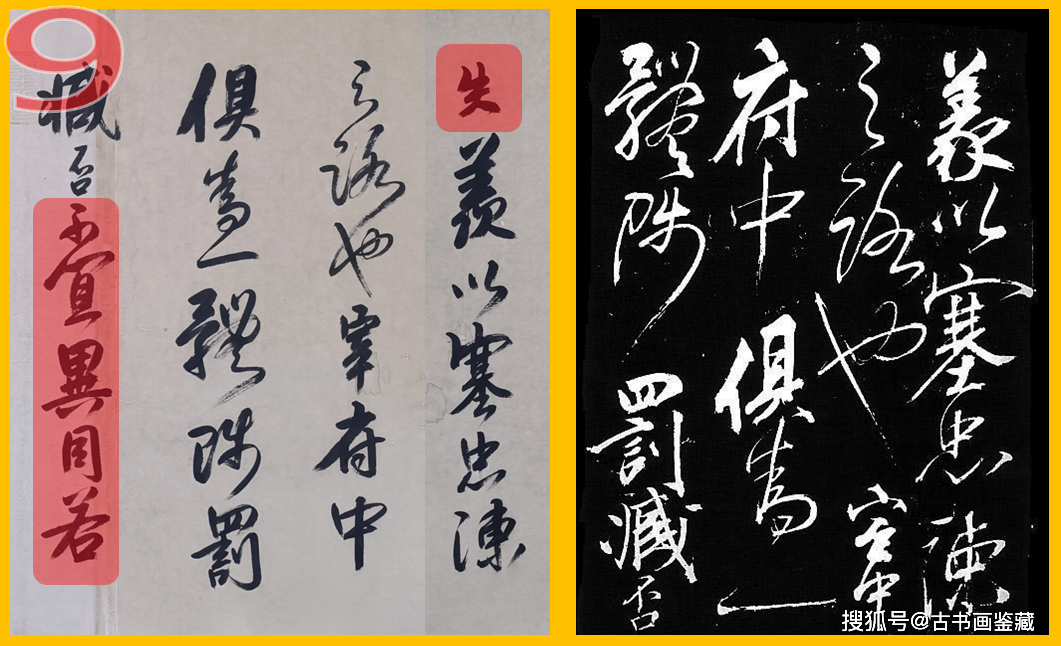 9
失義以塞忠諫
之路也宰府中
俱為一體陟罰
臧否不宜異同若
義以塞忠諫
之路也宮中
府中俱為一
體陟罰臧否
搜狐号@古书画鉴藏